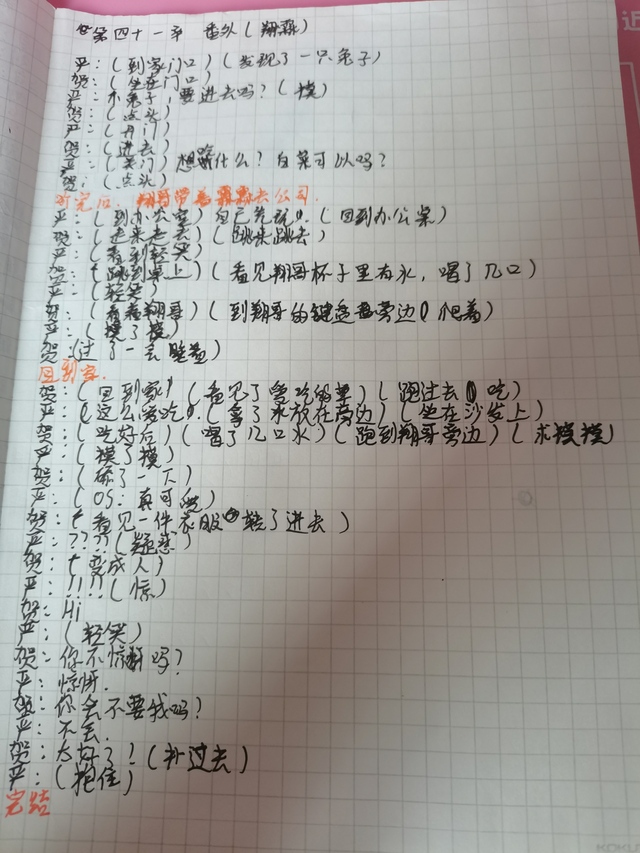 第四十一章 番外(翔霖)
严:(到家门口)(发现了一只兔子)
贺:(坐在门口)
严:小兔子,要进去吗?(摸)
贺:(点头)
严:(开门)
贺:(进去)
严:(关门)想吃什么?白菜可以吗?
贺:(点头)
吃完后,翔哥带着霖霖去公司.
严:(到办公室)自己先玩.(回到办公桌)
贺:(走来走去)(跳来跳去)
严:(看到轻笑)
贺:(跳到桌上)(看见翔哥杯子里有水,喝了几口)
严:(轻笑)
贺:(看看翔哥)(到翔哥的键盘旁边爬着)
严:(摸了摸)
贺:(过了一会睡着)
回到家.
贺:(回到家)(看见了爱吃的草)(跑过去吃)
严:(这么爱吃.)(拿了水放在旁边)(坐在沙发上)
贺:(吃好后)(喝了几口水)(跑到翔哥旁边)(求摸摸)
严:(摸了摸)
贺:(了一下)
严:(OS:真可爱)
贺:(看见一件衣服 了进去)
严:???(疑惑)
贺:(变成人)
严:!!!(惊)
贺:Hi
严:(轻笑)
贺:你不惊讶吗?
严:惊讶.
贺:你会不要我吗?
严:不会.
贺:太好了!(扑过去)
严:(抱住)
完结
KOKUYO